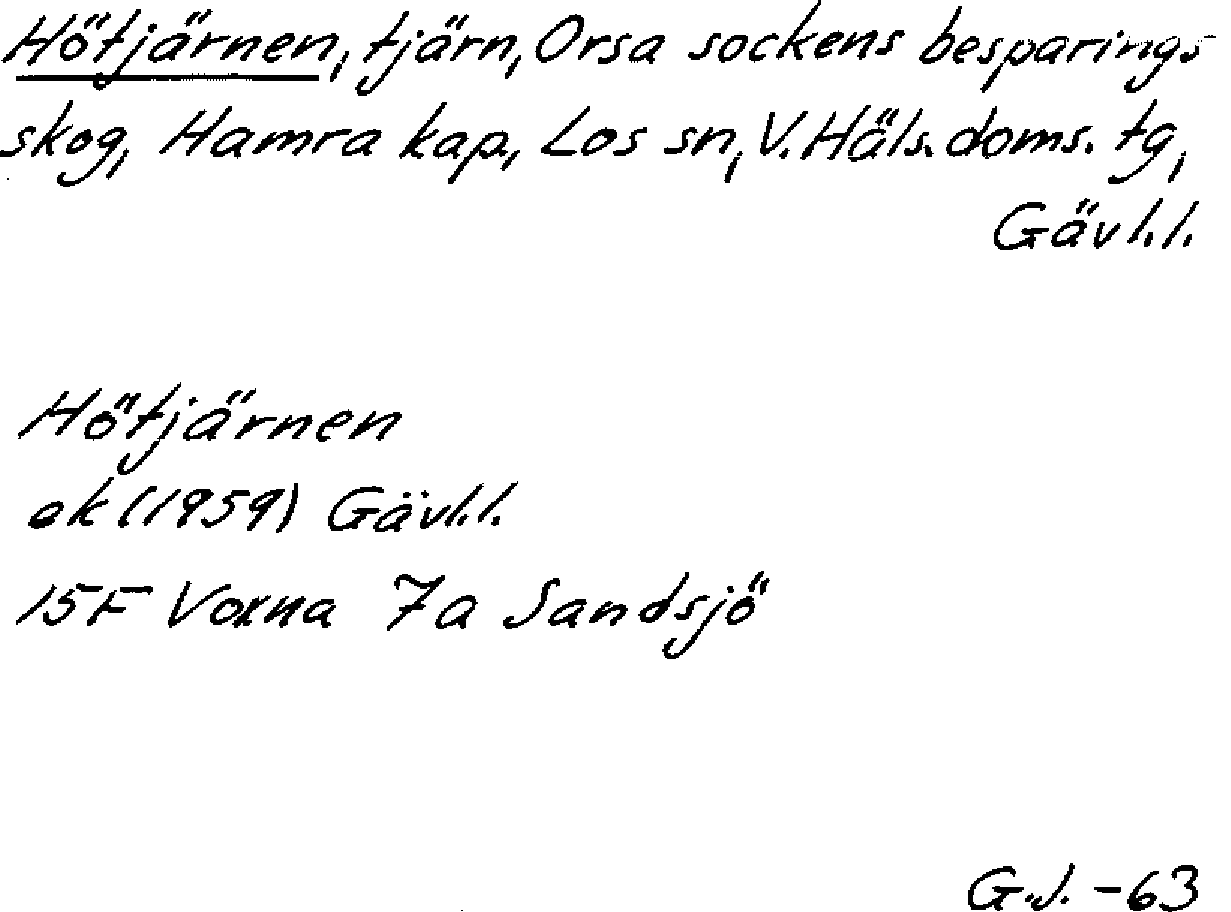 Hötjärnen, tjärn, Orsa sockens besparings
skog, Hamra kap., Los sn, V. Häls. doms. tg,
Gävl.l.
Hötjärnen
ek (1959) Gävl.l.
15F Voxna 7a Sandsjö
G.J. -63